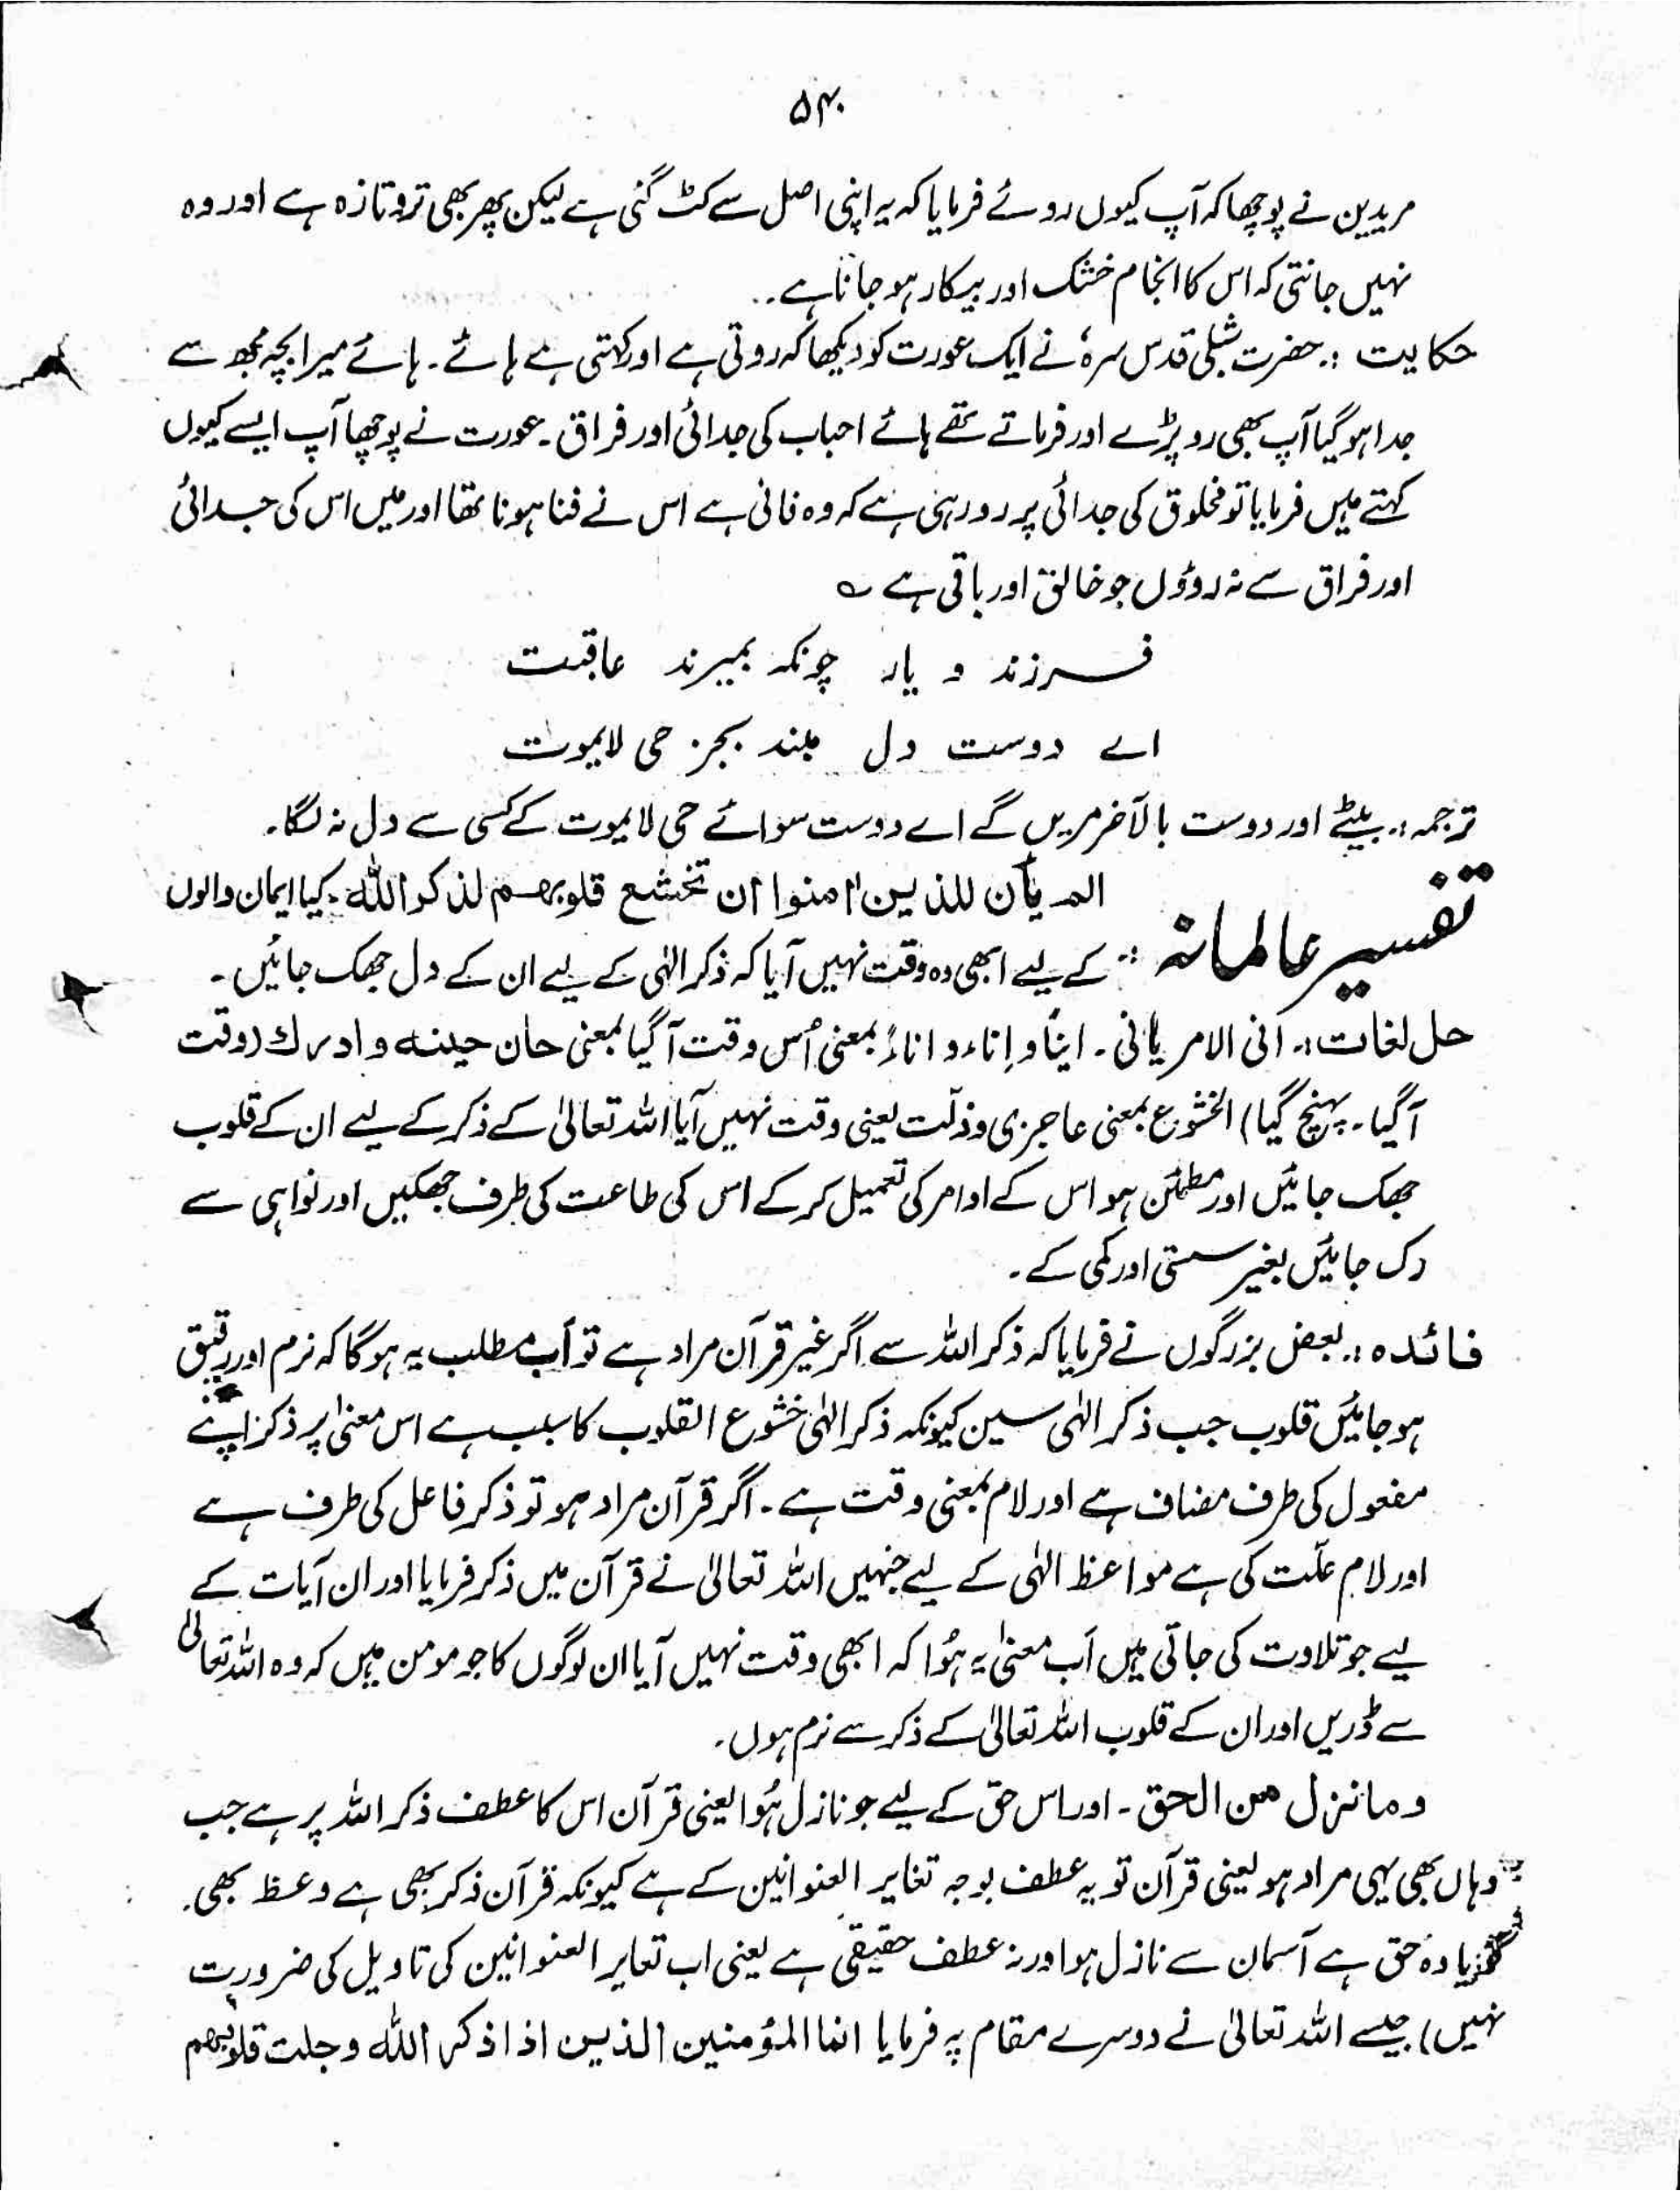 ۵۴۰
مریدین نے پوچھا کہ آپ کیوں روئے فرمایا کہ یہ اپنی اصل سے کٹ گئی ہے لیکن پھر بھی تروتازہ ہے اور وہ
نہیں جانتی کہ اس کا انجام خشک اور بیکار ہو جانا ہے۔۔
حکایت :۔ حضرت شبلی قدس سرہٗ نے ایک عورت کو دیکھا کہ روتی ہے اور کہتی ہے ہائے ۔ ہائے میرا بچہ مجھ سے
جدا ہو گیا آپ بھی رو پڑے اور فرماتے تھے ہائے احباب کی جدائی اور فراق ۔ عورت نے پوچھا آپ ایسے کیوں
کہتے ہیں فرمایا تو مخلوق کی جدائی پر رو رہی ہے کہ وہ فانی ہے اس نے فنا ہونا تھا اور میں اس کی جدائی
اور فراق سے نہ روؤں جو خالق اور باقی ہے ؎
فرزند و یار چونکہ بمیرند عاقبت
اے دوست دل مبند بجز حی لایموت
ترجمہ :۔ بیٹے اور دوست بالآخر مریں گے اے دوست سوائے حی لایموت کے کسی سے دل نہ لگا۔
الم یأن للذین اٰمنوا ان تخشع قلوبھم لذکر اللہ ۔ کیا ایمان والوں
تفسیر عالمانہ :۔ کے لیے ابھی وہ وقت نہیں آیا کہ ذکر الٰہی کے لیے ان کے دل جھک جائیں ۔
حل لغات :۔ آنی الامر یأنی ۔ ایناً و اِناء و اناءً بمعنی اُس وقت آگیا بمعنی حان حینہ و ادرك (وقت
آگیا ۔ پہنچ گیا) الخشوع بمعنی عاجزی و ذلّت یعنی وقت نہیں آیا اللہ تعالیٰ کے ذکر کے لیے ان کے قلوب
جھک جائیں اور مطمئن ہو اس کے اوامر کی تعمیل کر کے اس کی طاعت کی طرف جھکیں اور نواہی سے
رک جائیں بغیر سستی اور کمی کے ۔
فائدہ :۔ بعض بزرگوں نے فرمایا کہ ذکر اللہ سے اگر غیر قرآن مراد ہے تو اَب مطلب یہ ہوگا کہ نرم اور رقیق
ہو جائیں قلوب جب ذکر الٰہی سنیں کیونکہ ذکر الٰہی خشوع القلوب کا سبب ہے اس معنیٰ پر ذکر اپنے
مفعول کی طرف مضاف ہے اور لام بمعنی وقت ہے ۔ اگر قرآن مراد ہو تو ذکر فاعل کی طرف ہے
اور لام علّت کی ہے مواعظ الٰہی کے لیے جنہیں اللہ تعالیٰ نے قرآن میں ذکر فرمایا اور ان آیات کے
لیے جو تلاوت کی جاتی ہیں اَب معنیٰ یہ ہُوا کہ ابھی وقت نہیں آیا ان لوگوں کا جو مومن ہیں کہ وہ اللہ تعالیٰ
سے ڈریں اور ان کے قلوب اللہ تعالیٰ کے ذکر سے نرم ہوں۔
و ما نزل من الحق ۔ اور اس حق کے لیے جو نازل ہُوا یعنی قرآن اس کا عطف ذکر اللہ پر ہے جب
وہاں بھی یہی مراد ہو یعنی قرآن تو یہ عطف بوجہ تغایر العنوانین کے ہے کیونکہ قرآن ذکر بھی ہے وعظ بھی۔
وہ حق ہے آسمان سے نازل ہوا ورنہ عطف حقیقی ہے یعنی اب تغایر العنوانین کی تاویل کی ضرورت
نہیں) جیسے اللہ تعالیٰ نے دوسرے مقام پہ فرمایا انما المؤمنین الذین اذا ذکر اللہ وجلت قلوبھم